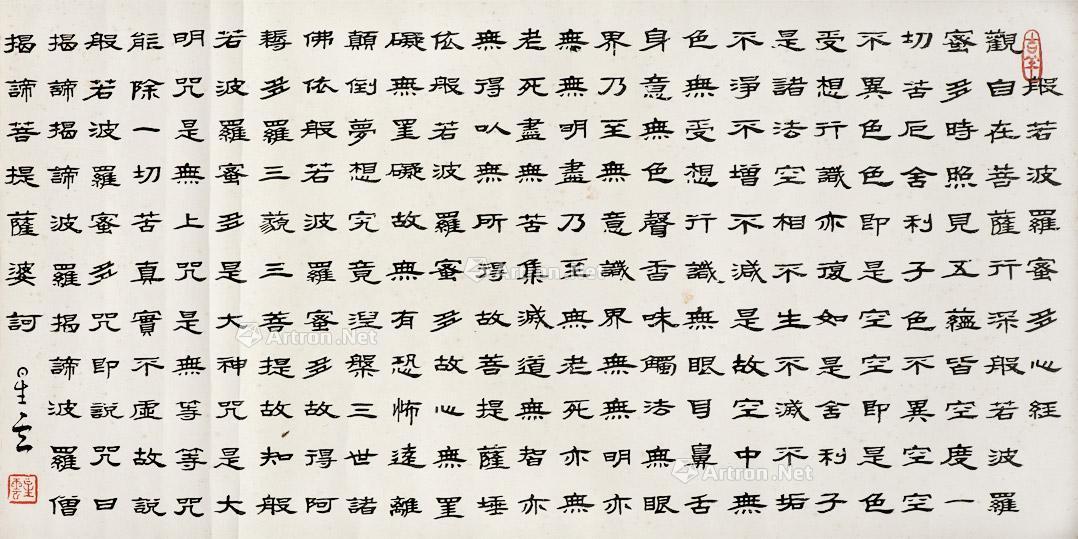 般若波羅蜜多心経
觀自在菩薩行深般若波羅
蜜多時照見五蘊皆空度一
切苦厄舍利子色不異空空
不異色色即是空空即是色
受想行識亦復如是舍利子
是諸法空相不生不滅不垢
不淨不增不減是故空中無
色無受想行識無眼耳鼻舌
身意無色聲香味觸法無眼
界乃至無意識界無無明亦
無無明盡乃至無老死亦無
老死盡無苦集滅道無智亦
無得以無所得故菩提薩埵
依般若波羅蜜多故心無罣
礙無罣礙故無有恐怖遠離
顛倒夢想究竟涅槃三世諸
佛依般若波羅蜜多故得阿
耨多羅三藐三菩提故知般
若波羅蜜多是大神咒是大
明咒是無上咒是無等等咒
能除一切苦真實不虛故說
般若波羅蜜多咒即說咒曰
揭諦揭諦波羅揭諦波羅僧
揭諦菩提薩婆訶
星云
星雲
Artron.Net
Artron.Net
Artron.Net
Artron.Net